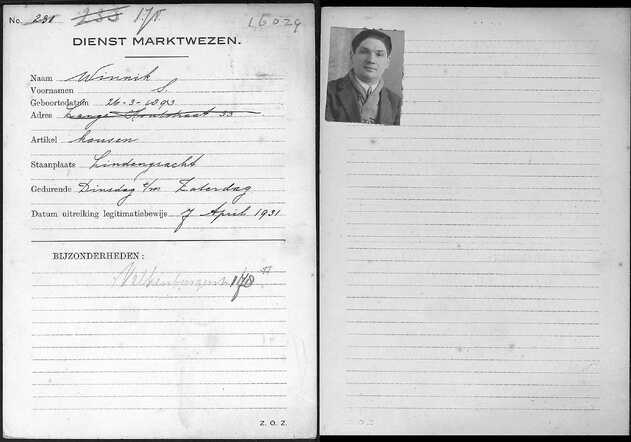 No. 231 233 178.
DIENST MARKTWEZEN.
Naam Winnik
Voornamen S.
Geboortedatum 26-3-1893
Adres Lange Houtstraat 33
Artikel kousen
Staanplaats Lindengracht
Gedurende Dinsdag t/m Zaterdag
Datum uitreiking legitimatiebewijs 7 April 1931
BIJZONDERHEDEN:
178
Z. O. Z.